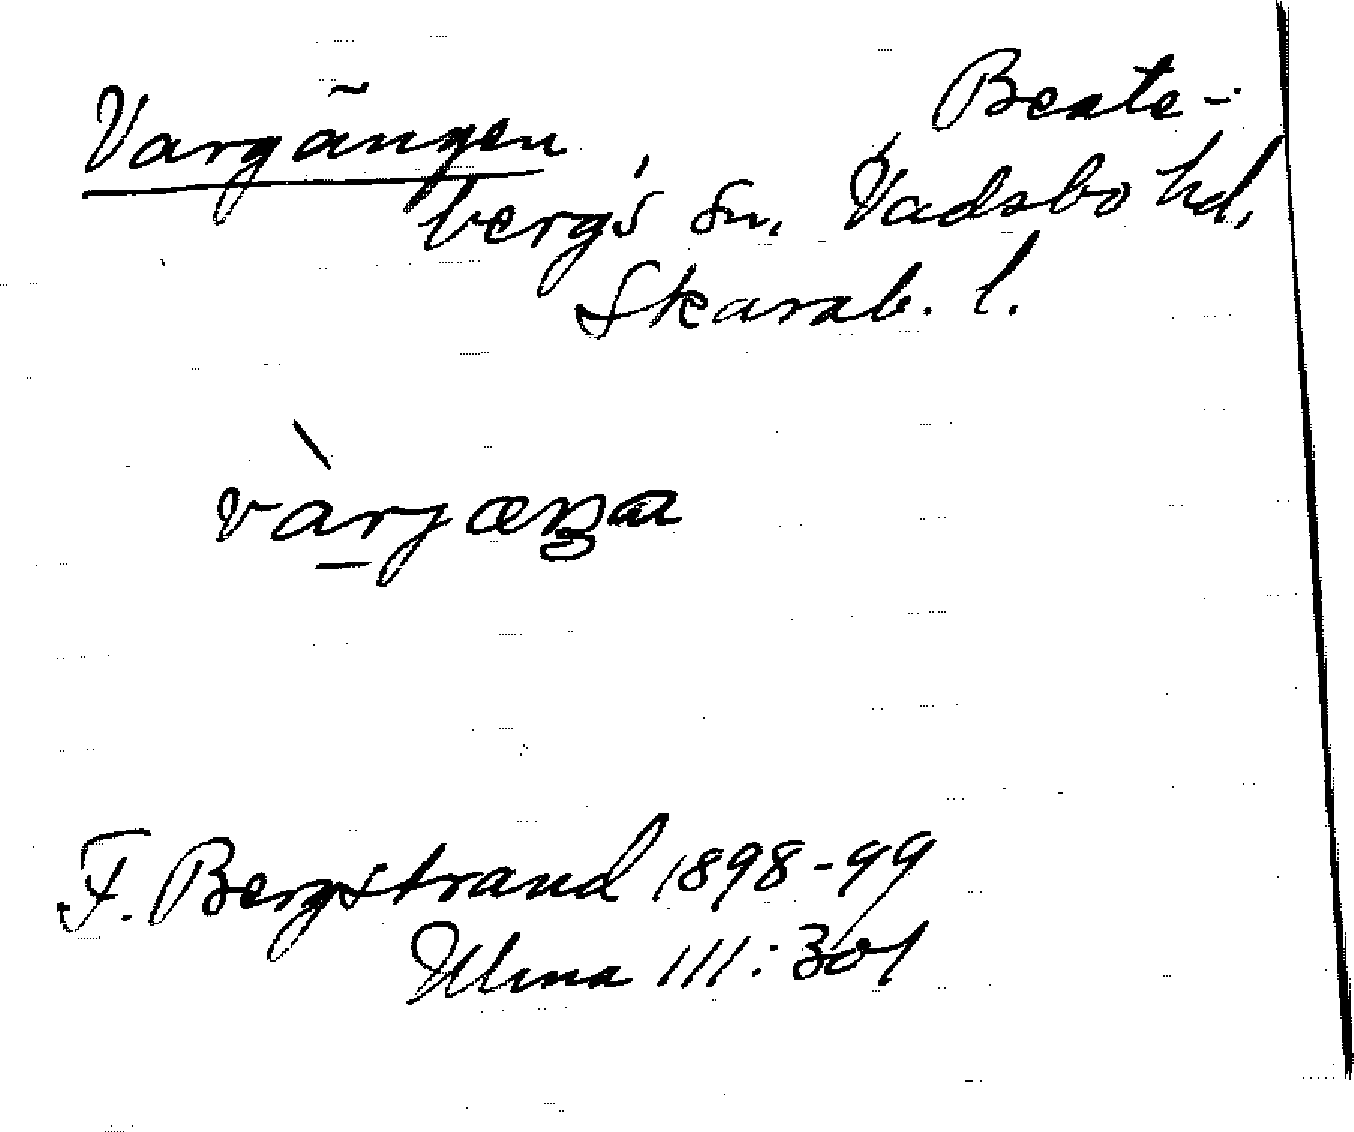 Vargängen Beate-
bergs sn. Vadsbo hd.
Skarab. l.
F. Bergstrand 1898-99
Ulma 111:301